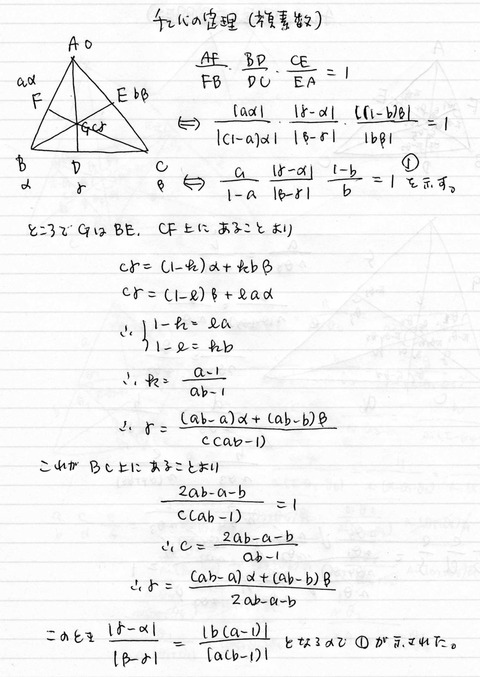 チェバの定理(複素数)
A 0
aα
F
E bβ
G cγ
B
α
D
γ
C
β
AF/FB · BD/DC · CE/EA = 1
⇔ |aα|/|(1-a)α| · |γ-α|/|β-γ| · |(1-b)β|/|bβ| = 1
⇔ a/(1-a) |γ-α|/|β-γ| (1-b)/b = 1 ①を示す。
ところでGはBE, CF上にあることより
cγ = (1-k)α + kbβ
cγ = (1-l)β + laα
∴ { 1-k = la
1-l = kb
∴ k = (a-1)/(ab-1)
∴ γ = ((ab-a)α + (ab-b)β)/(c(ab-1))
これがBC上にあることより
(2ab-a-b)/(c(ab-1)) = 1
∴ c = (2ab-a-b)/(ab-1)
∴ γ = ((ab-a)α + (ab-b)β)/(2ab-a-b)
このとき |γ-α|/|β-γ| = |b(a-1)|/|a(b-1)| となるので①が示された。